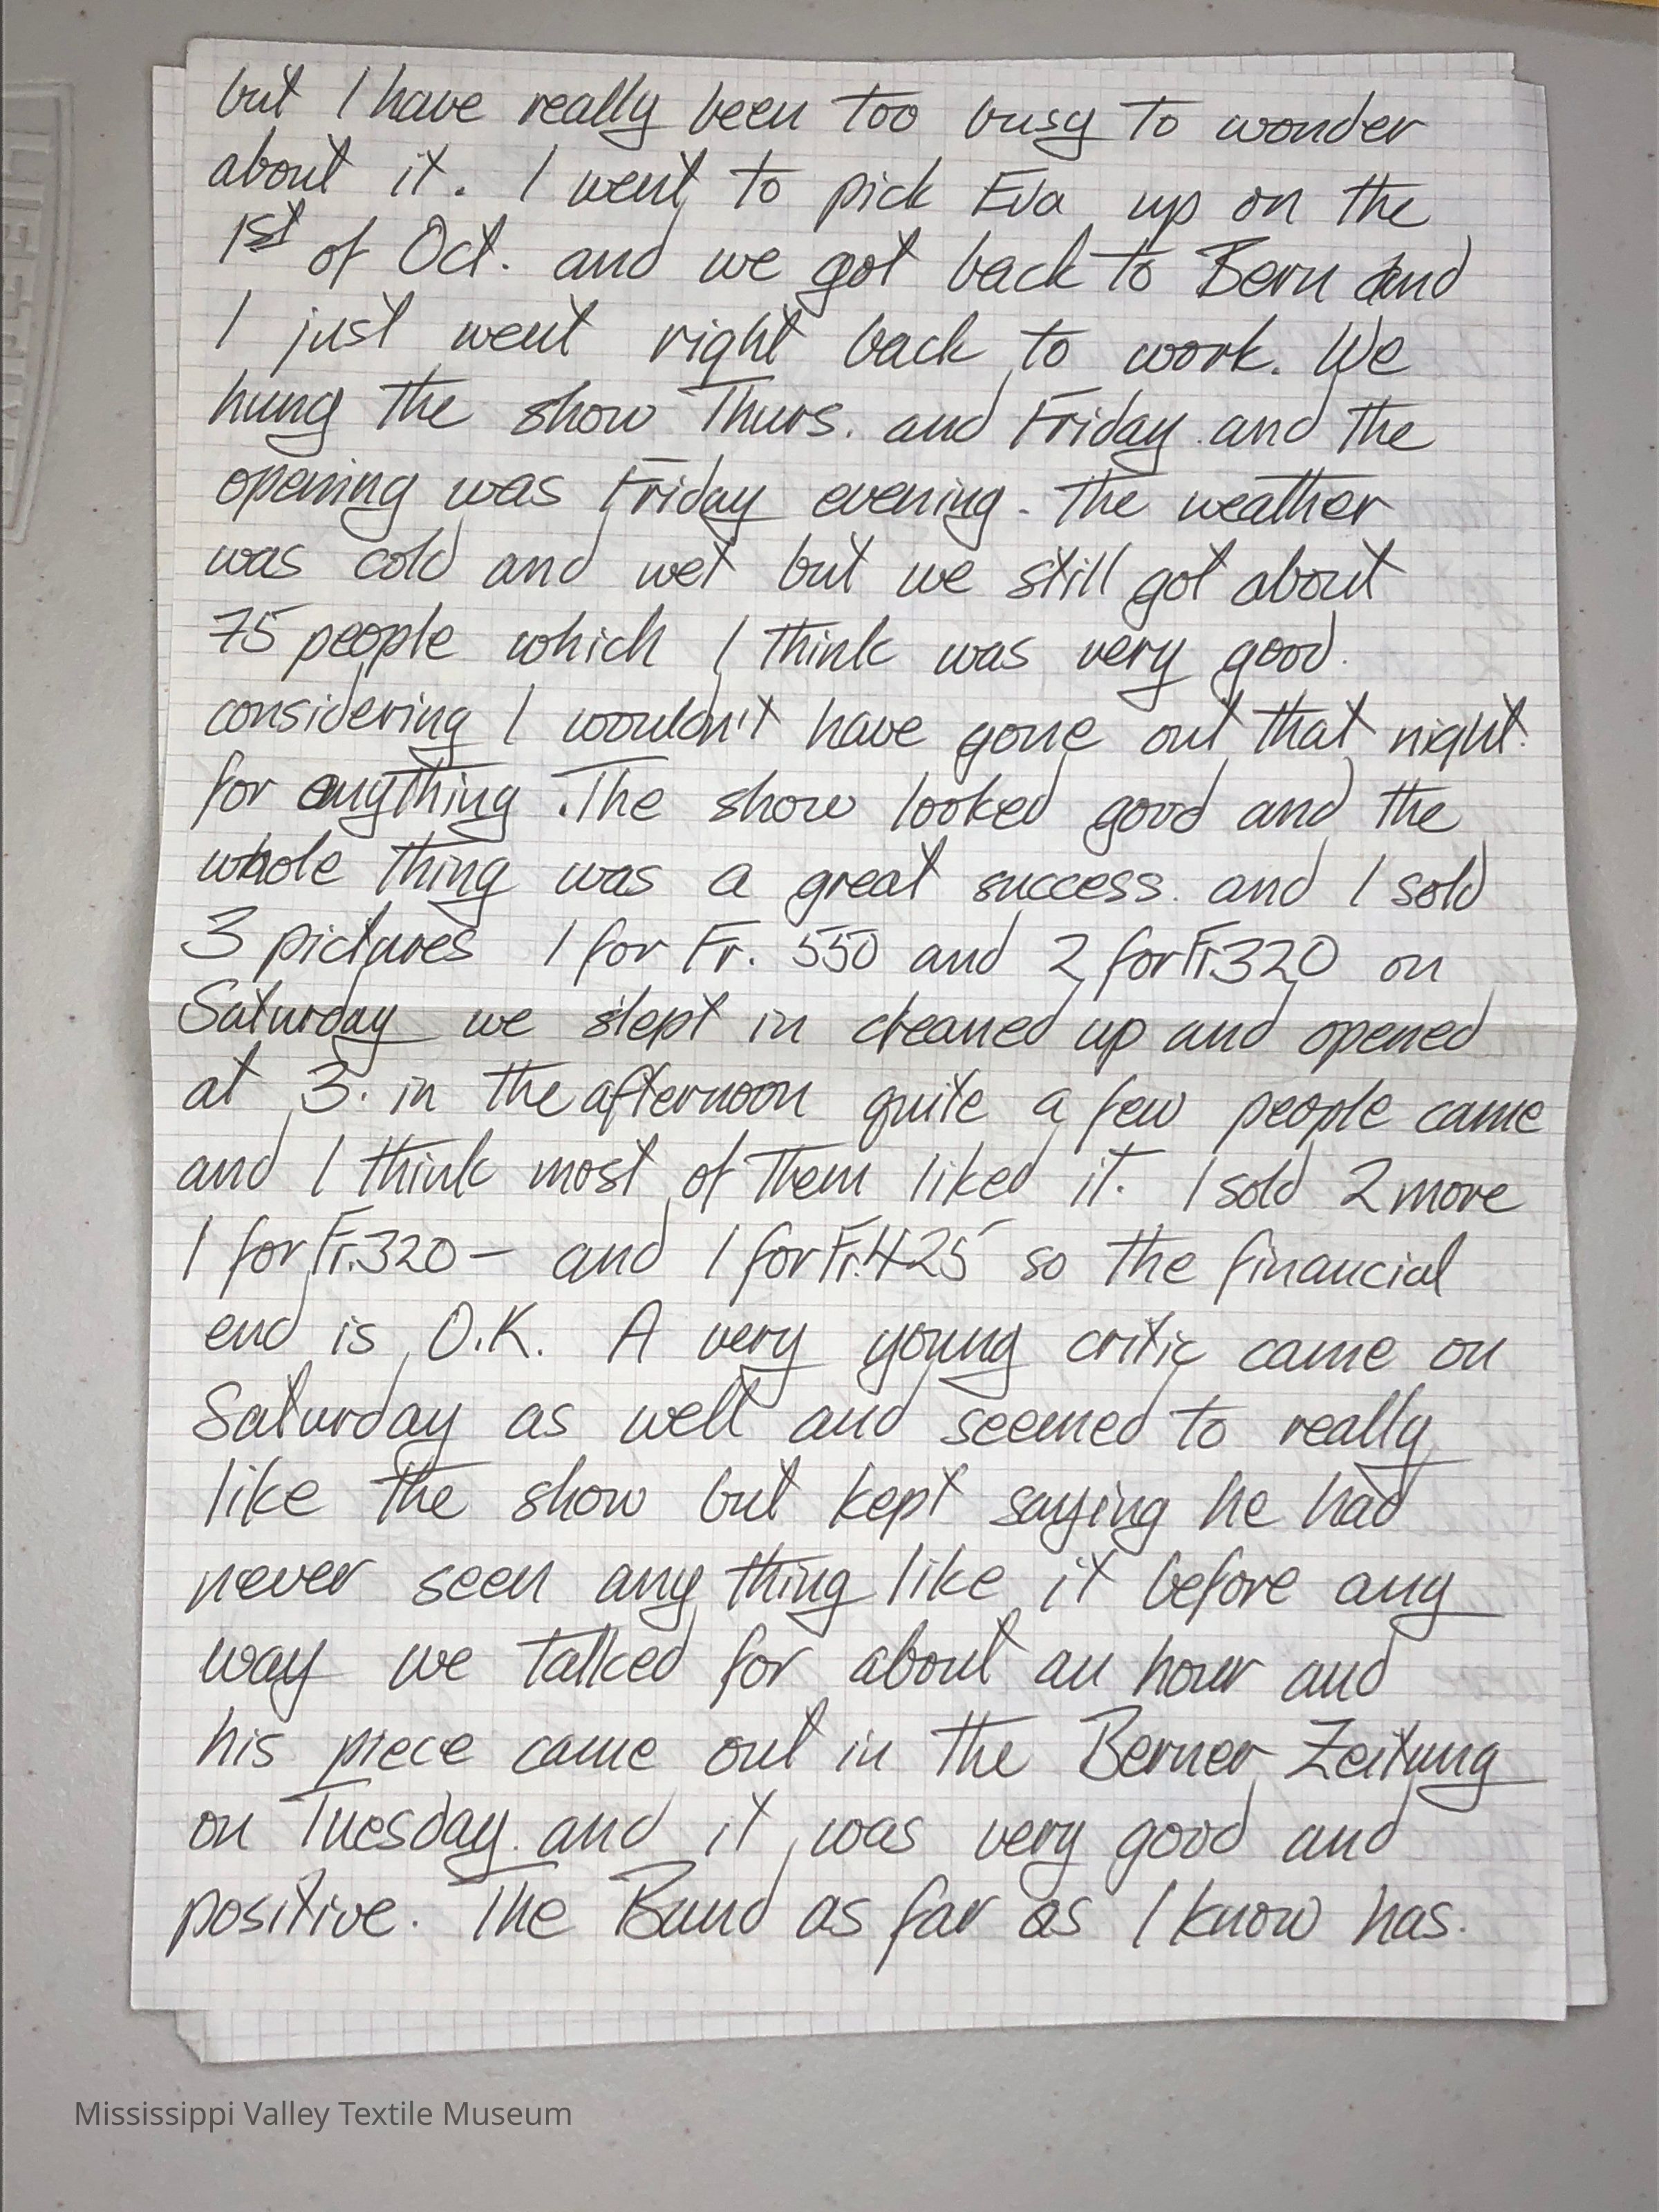 but I have really been too busy to wonder
about it. I went to pick Eva up on the
1st of Oct. and we got back to Bern and
I just went right back to work. We
hung the show Thurs. and Friday and the
opening was Friday evening. The weather
was cold and wet but we still got about
75 people which I think was very good.
considering I wouldn't have gone out that night.
for anything. The show looked good and the
whole thing was a great success. and I sold
3 pictures 1 for Fr. 550 and 2 for Fr.320 on
Saturday we slept in cleaned up and opened
at 3. in the afternoon quite a few people came
and I think most of them liked it. I sold 2 more
1 for Fr.320— and 1 for Fr.425 so the financial
end is O.K. A very young critic came on
Saturday as well and seemed to really
like the show but kept saying he had
never seen any thing like it before any
way we talked for about an hour and
his piece came out in the Berner Zeitung
on Tuesday. and it was very good and
positive. The Bund as far as I know has.
Mississippi Valley Textile Museum